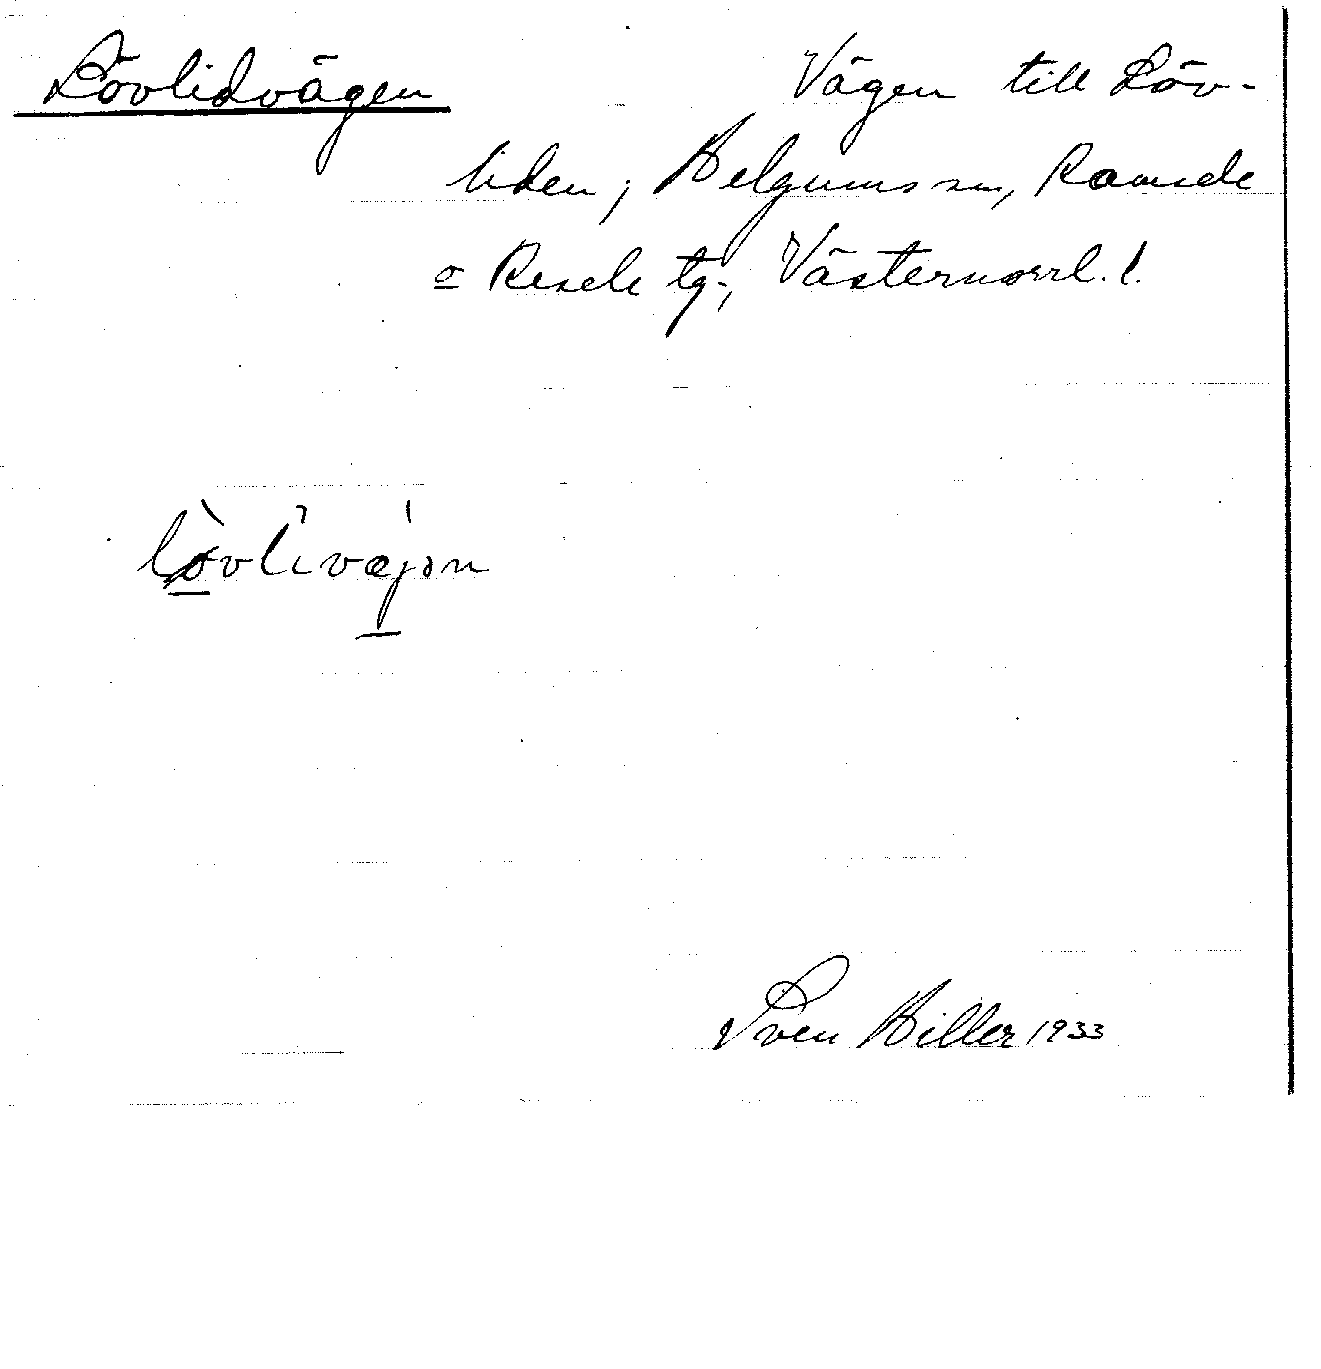 Lövlidvägen
Vägen till Löv-
liden, Helgums sn, Ramsele
o Resele tg., Västernorrl. l.
Sven Hiller 1933